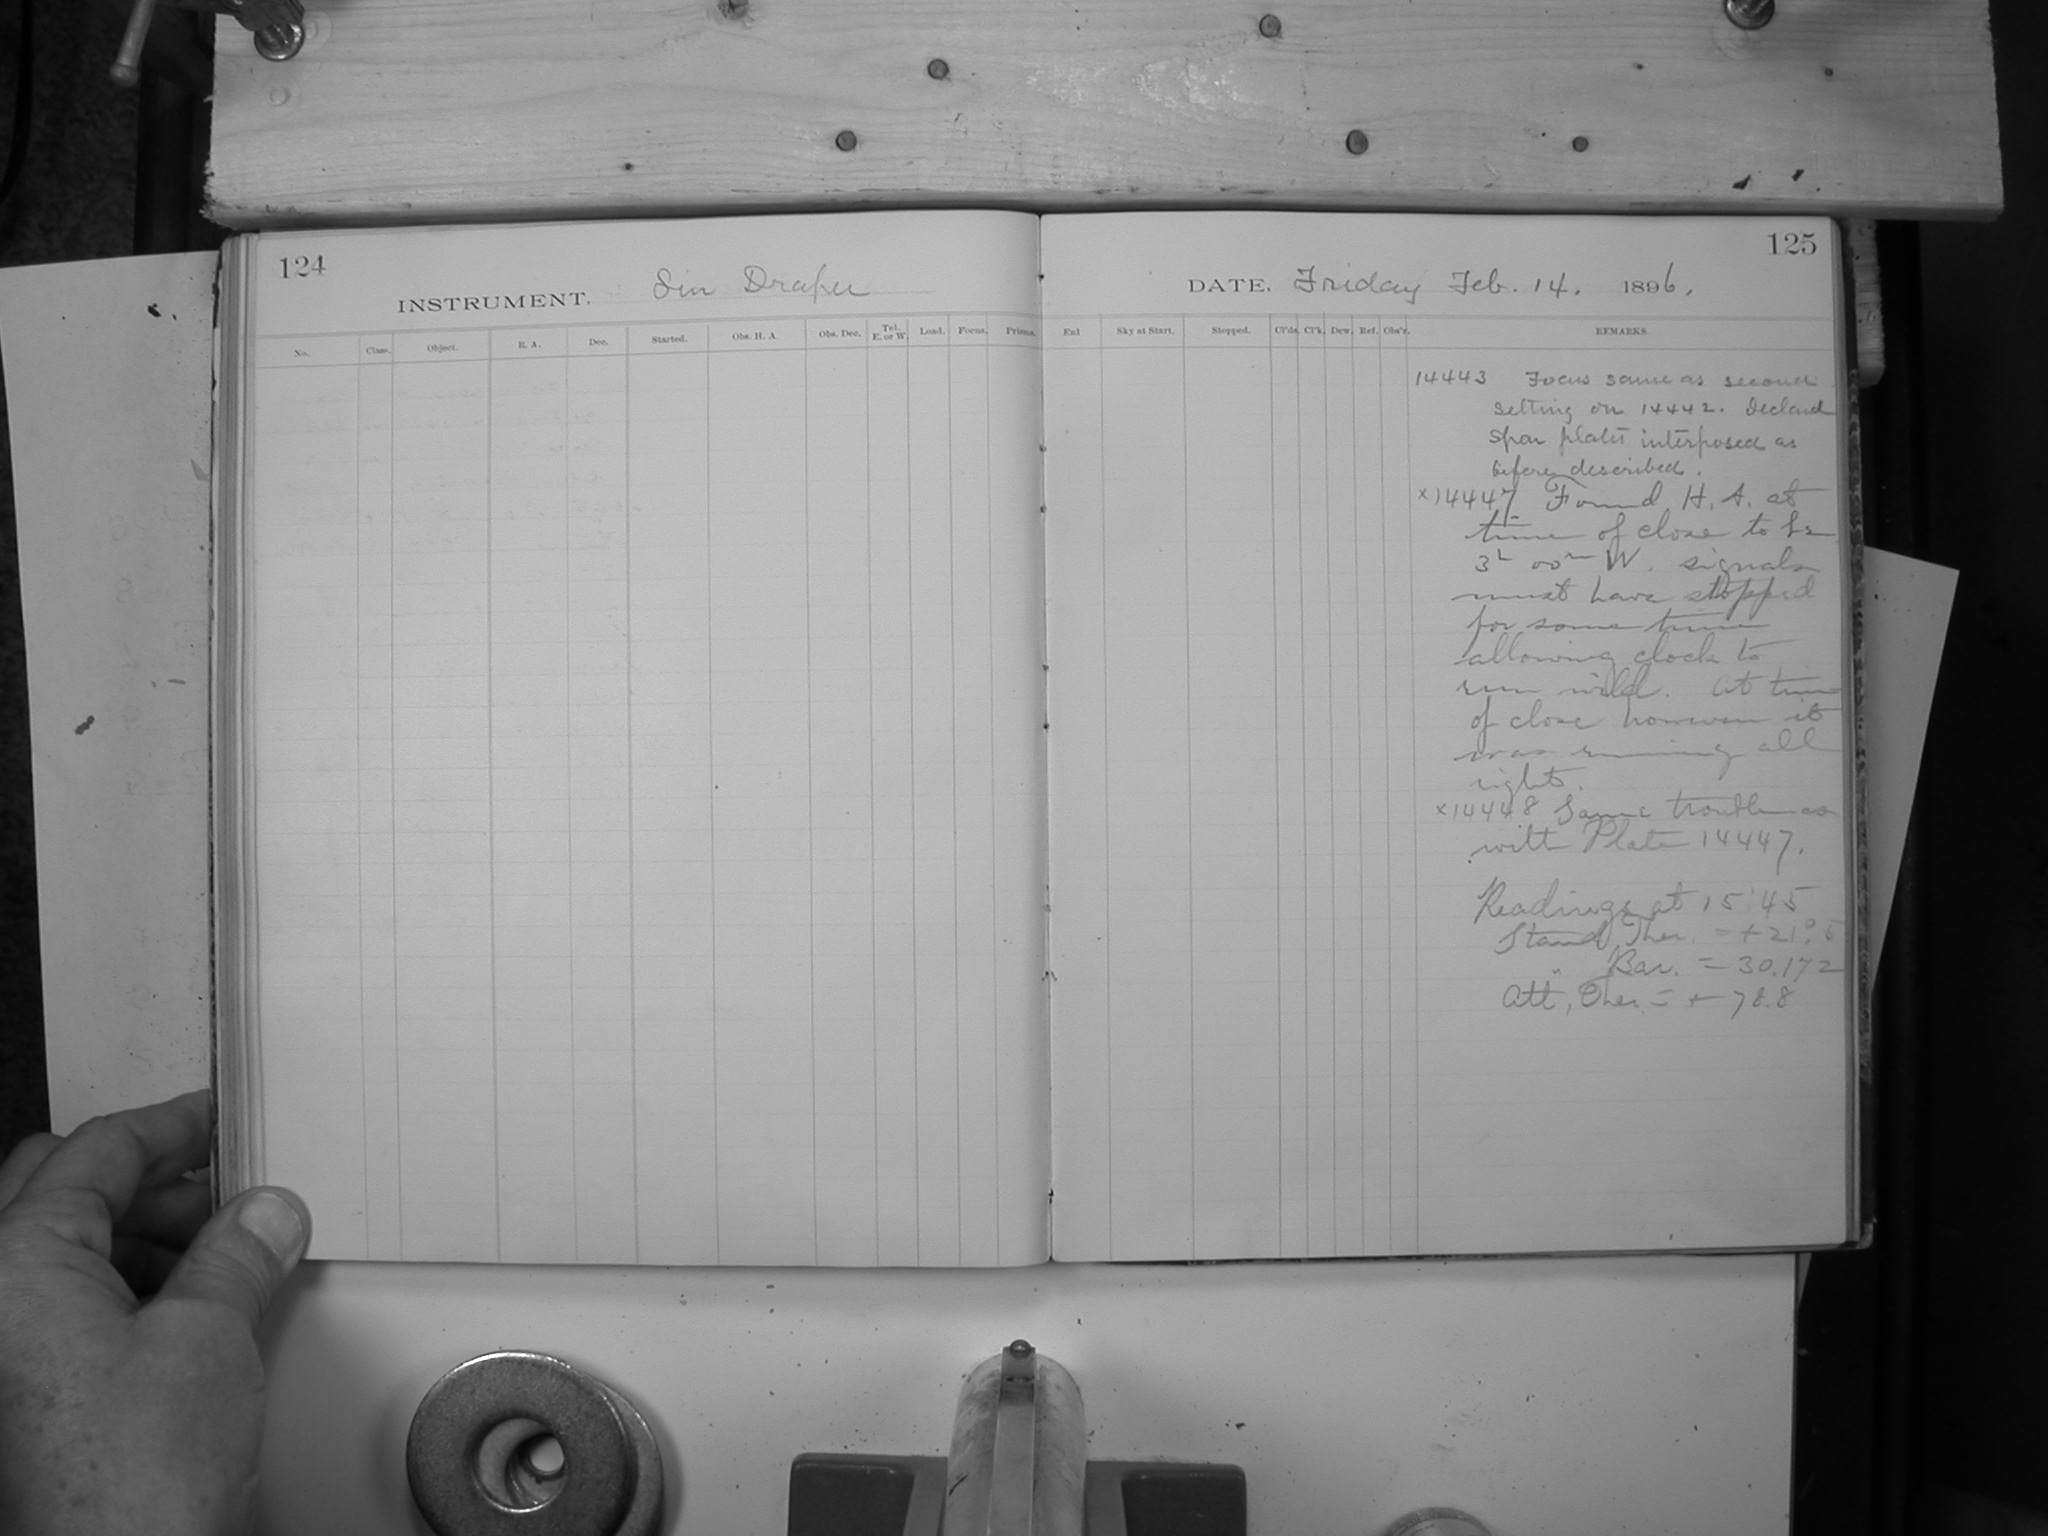 124
INSTRUMENT. 8in Draper
No. Class. Object. R. A. Dec. Started. Obs. H. A. Obs. Dec. Tel. E. or W. Load. Focus. Prisms.
125
DATE. Friday Feb. 14. 1896.
Exl Sky at Start. Stopped. Cl'ds. Cl'k. Dew. Ref. Obs'r. REMARKS.
14443 Focus same as second
setting on 14442. Iceland
spar plates interposed as
before described.
x14447 Found H. A. at
time of close to be
3h 00m W. signals
must have stopped
for some time
allowing clock to
run wild. At time
of close however it
was running all
right.
x14448 Same trouble as
with Plate 14447.
Readings at 15 45
Stand. Ther. = +21°.5
" Bar. = 30.172
Att. Ther. = + 78.8